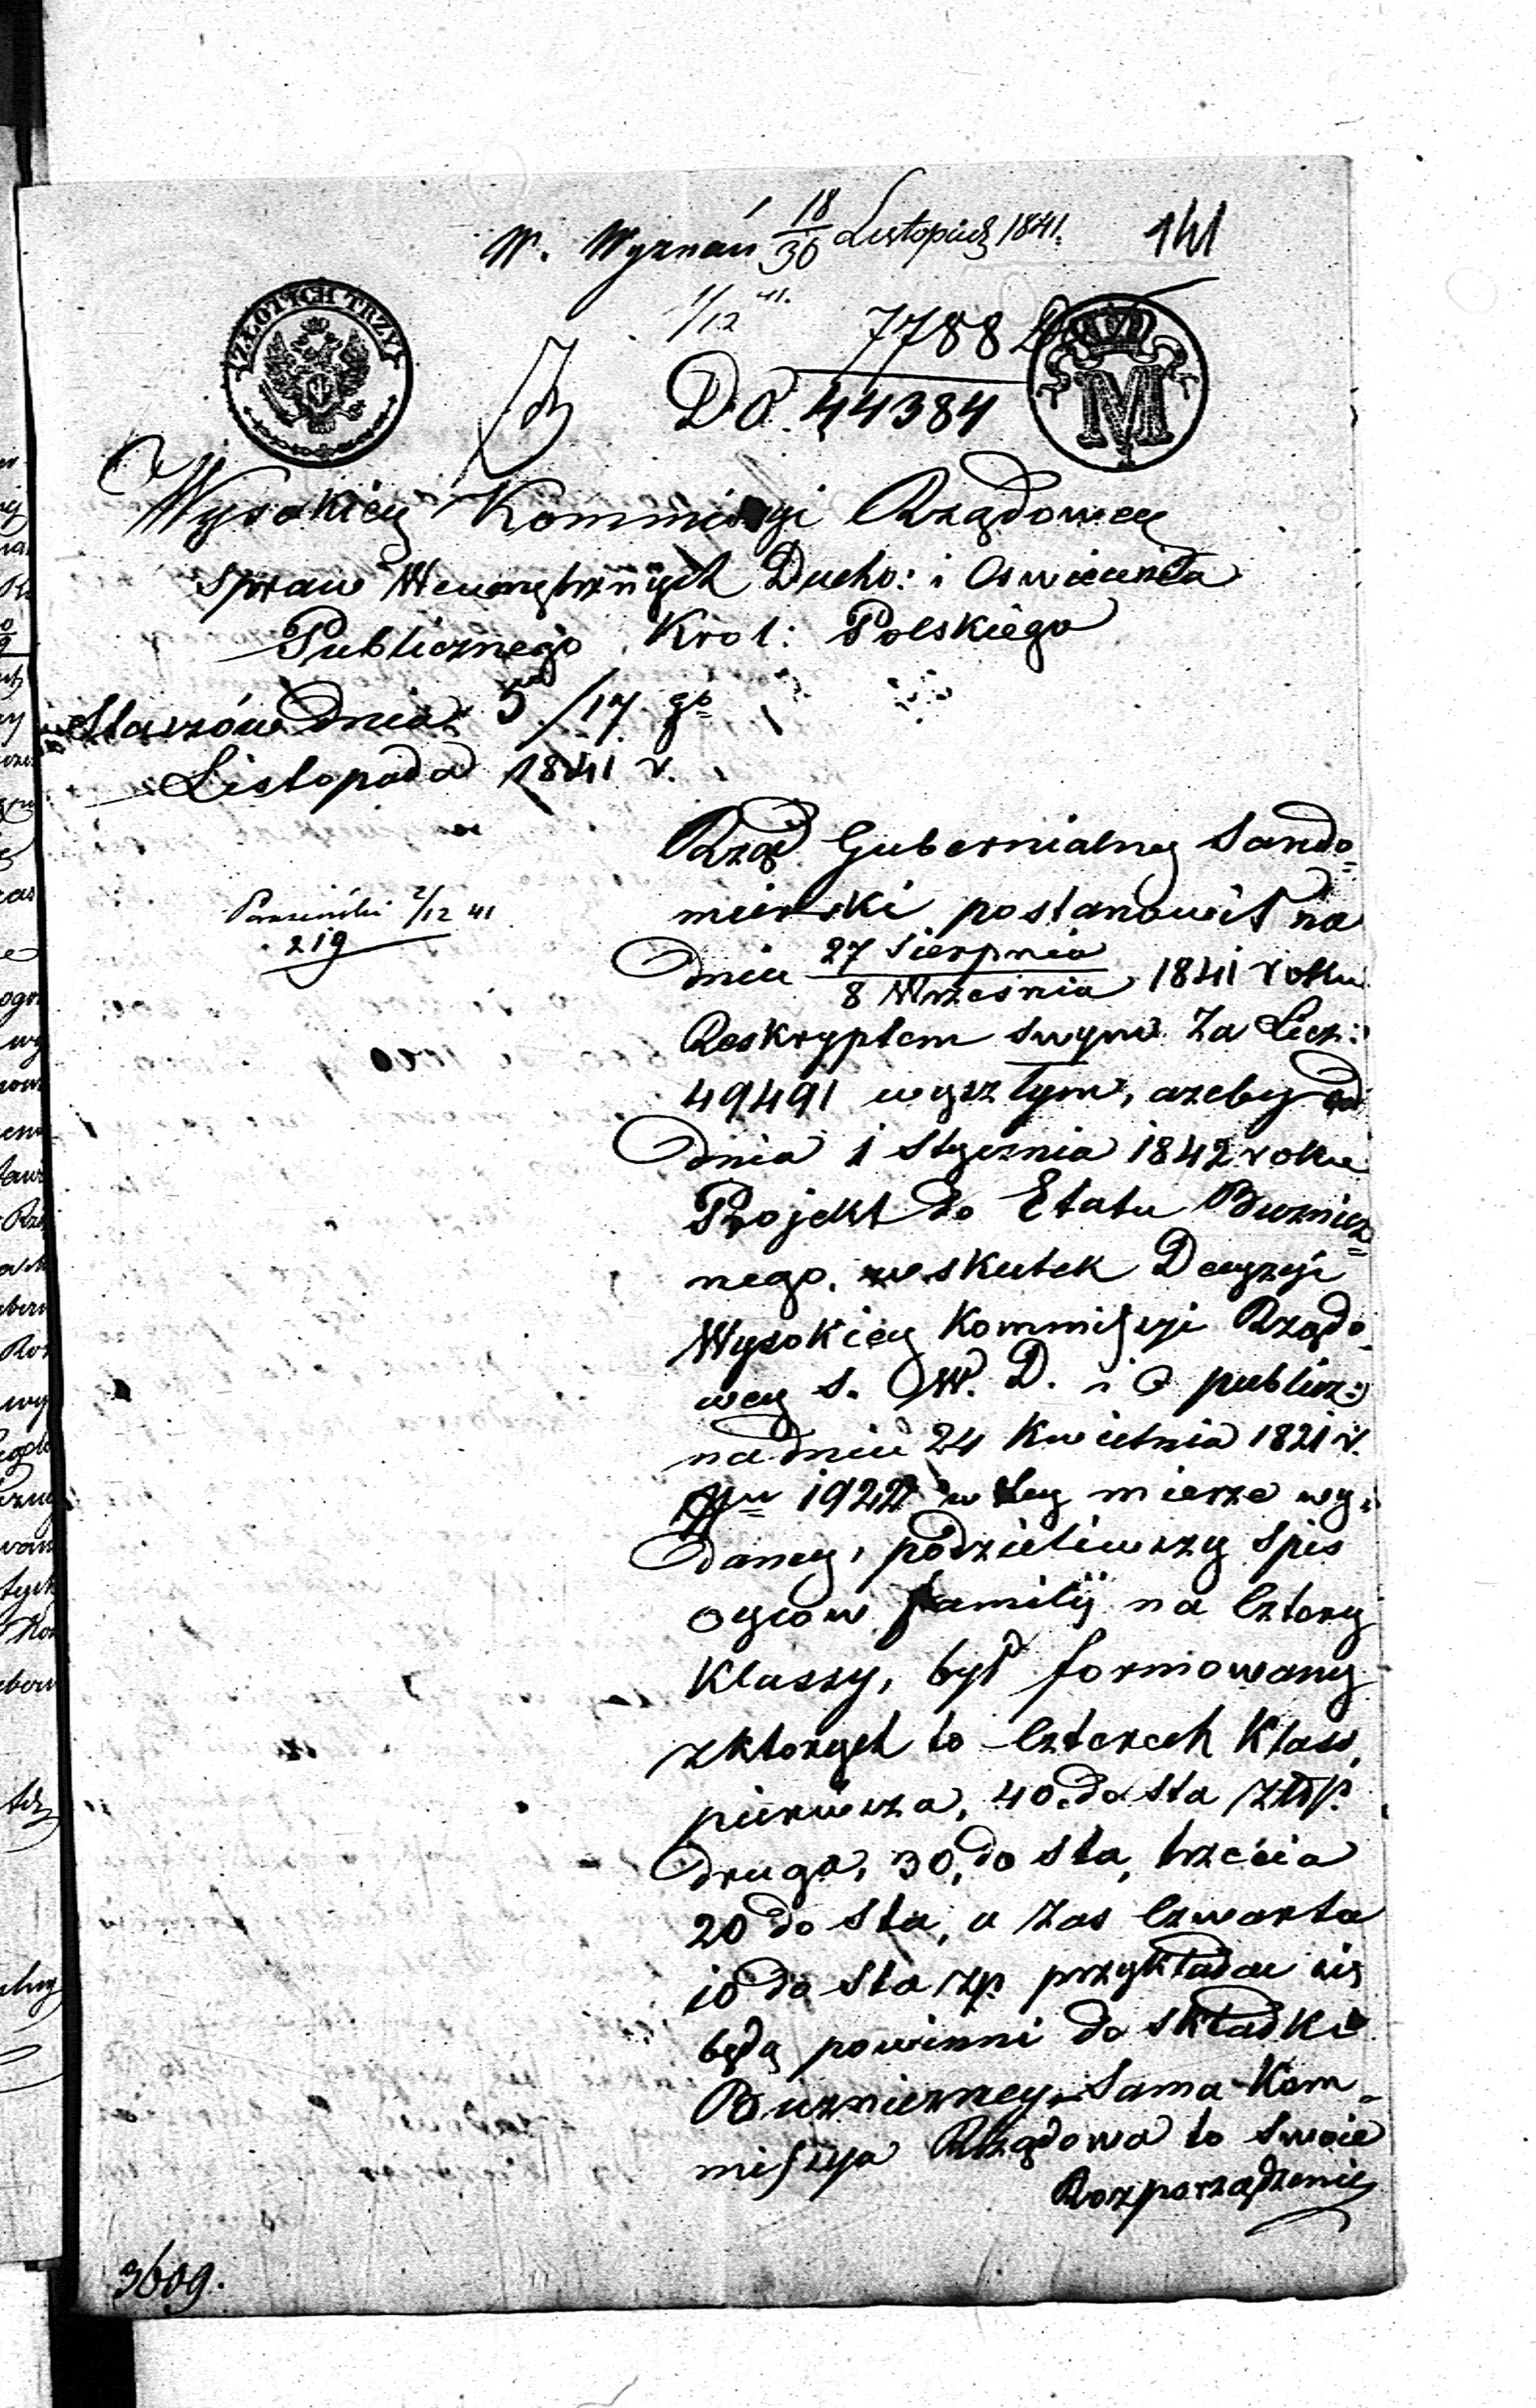 W. Wyznań 18/30 Listopad 1841.
141
1/12 41.
7788
ZŁOTICH TRZY
M
Do 44384
Wysokiey Kommissyi Rządowey
Spraw Wewnętrznych Ducho: i Oswiecenia
Publicznego Krol: Polskiego
Staszów dnia 5/17 go
Listopada 1841 r.
Rząd Gubernialney Sando=
mierski postanowił na
2/12 41
219
dniu 27 Sierpnia / 8 Września 1841 roku
Reskryptem swym Za Licz:
49491 wyszłym, azeby od
dnia 1 Stycznia 1842 roku
Projekt do Etatu Buznicz=
nego, wskutek Decyzyi
Wysokiey Kommissyi Rządo
wey S. W. D. i O publicz:
na dniu 24 Kwietnia 1821 r.
1922 w tey mierze wy=
daney, podzieliwszy Spis
oycow familij na cztery
Klassy, był formowany
zktorych to czterech Klass,
pierwsza, 40 do Sta złp.
druga, 30, do Sta, trzecia
20 do Sta, a zas czwarta
10 do Sta zp. przykładac się
będą powinni do składki
Buzniczney. Sama Kom=
missya Rządowa to Swoie
Rozporządzenie
3609.